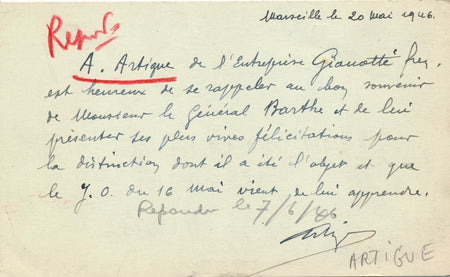 Marseille le 20 Mai 1946.
A. Artigue de l'Entreprise Gianotté
est heureux de se rappeler au bon souvenir
de Monsieur le Général Barthe et de lui
présenter ses plus vives félicitations pour
la distinction dont il a été l'objet et que
le J.O. du 16 Mai vient de lui apprendre.
Répondu le 7/6/46
ARTIGUE